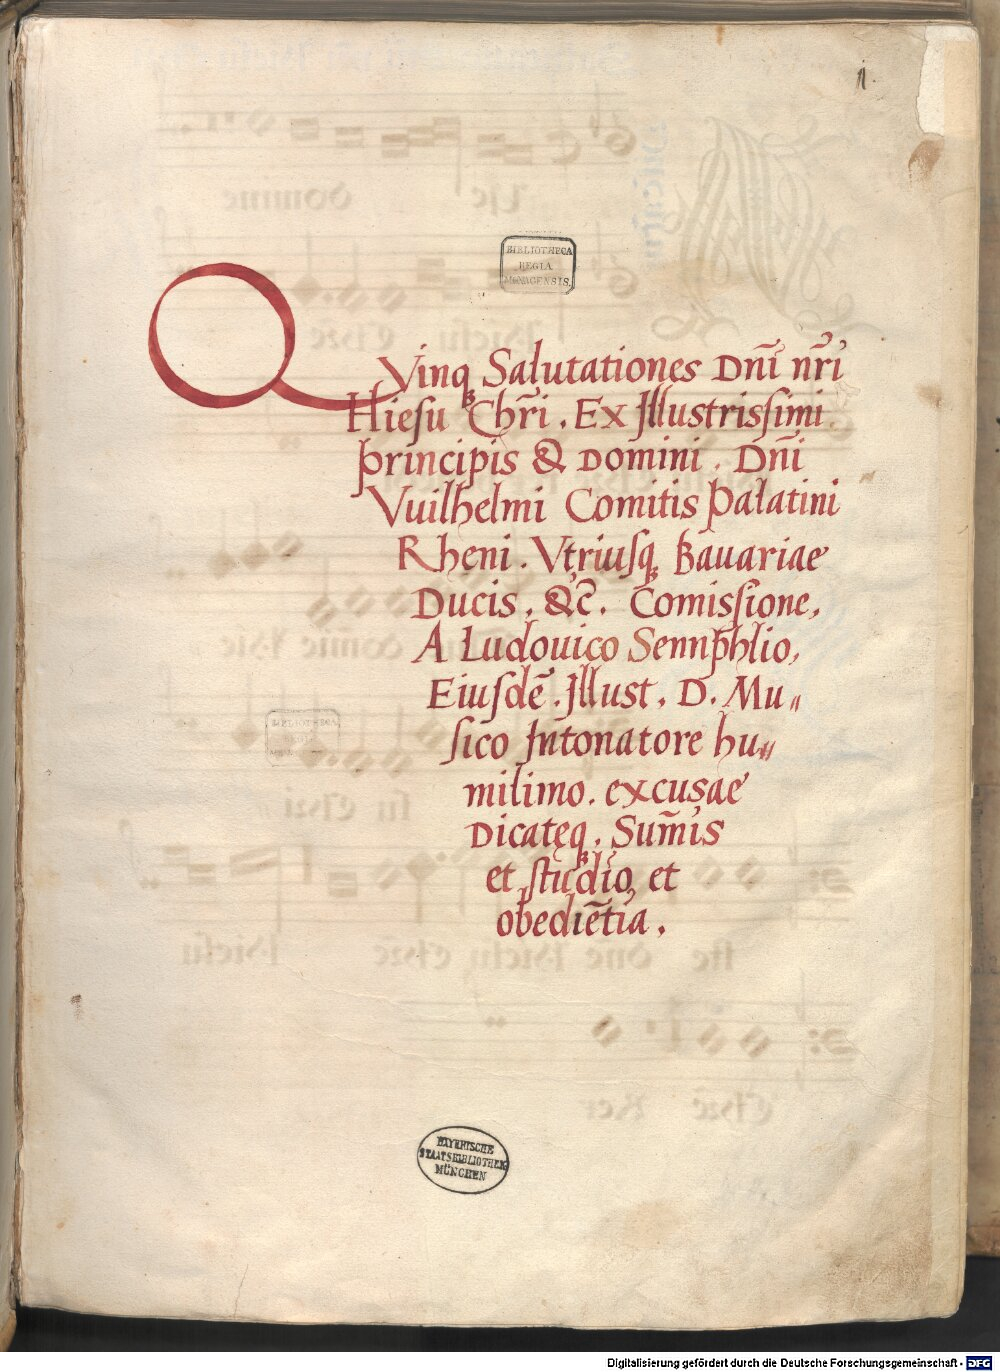 1.
BIBLIOTHECA
REGIA
MONACENSIS.
Qvinqꝫ Salutationes Dn̄i nr̄i
Hiesu Chr̄i. Ex Illustrissimi
principis & Domini. Dn̄i
Vuilhelmi Comitis palatini
Rheni. Vtriusqꝫ Bauariae
Ducis. &c̄. Com̄issione,
A Ludouico Sennphlio,
Eiusdē. Illust. D. Mu„
sico Intonatore hu„
milimo. excusae
Dicateqꝫ. Sum̄is
et studio, et
obediētia.
BIBLIOTHECA
REGIA
BAYERISCHE
STAATSBIBLIOTHEK
MÜNCHEN
Digitalisierung gefördert durch die Deutsche Forschungsgemeinschaft - DFG